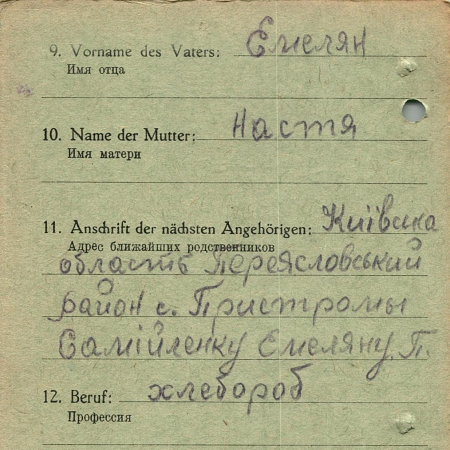 9. Vorname des Vaters: Емелян
Имя отца
10. Name der Mutter: Настя
Имя матери
11. Anschrift der nächsten Angehörigen: Київська
Адрес ближайших родственников
область Переясловський
район с. Пристромы
Самійленку Емеляну. П.
12. Beruf: хлебороб
Профессия